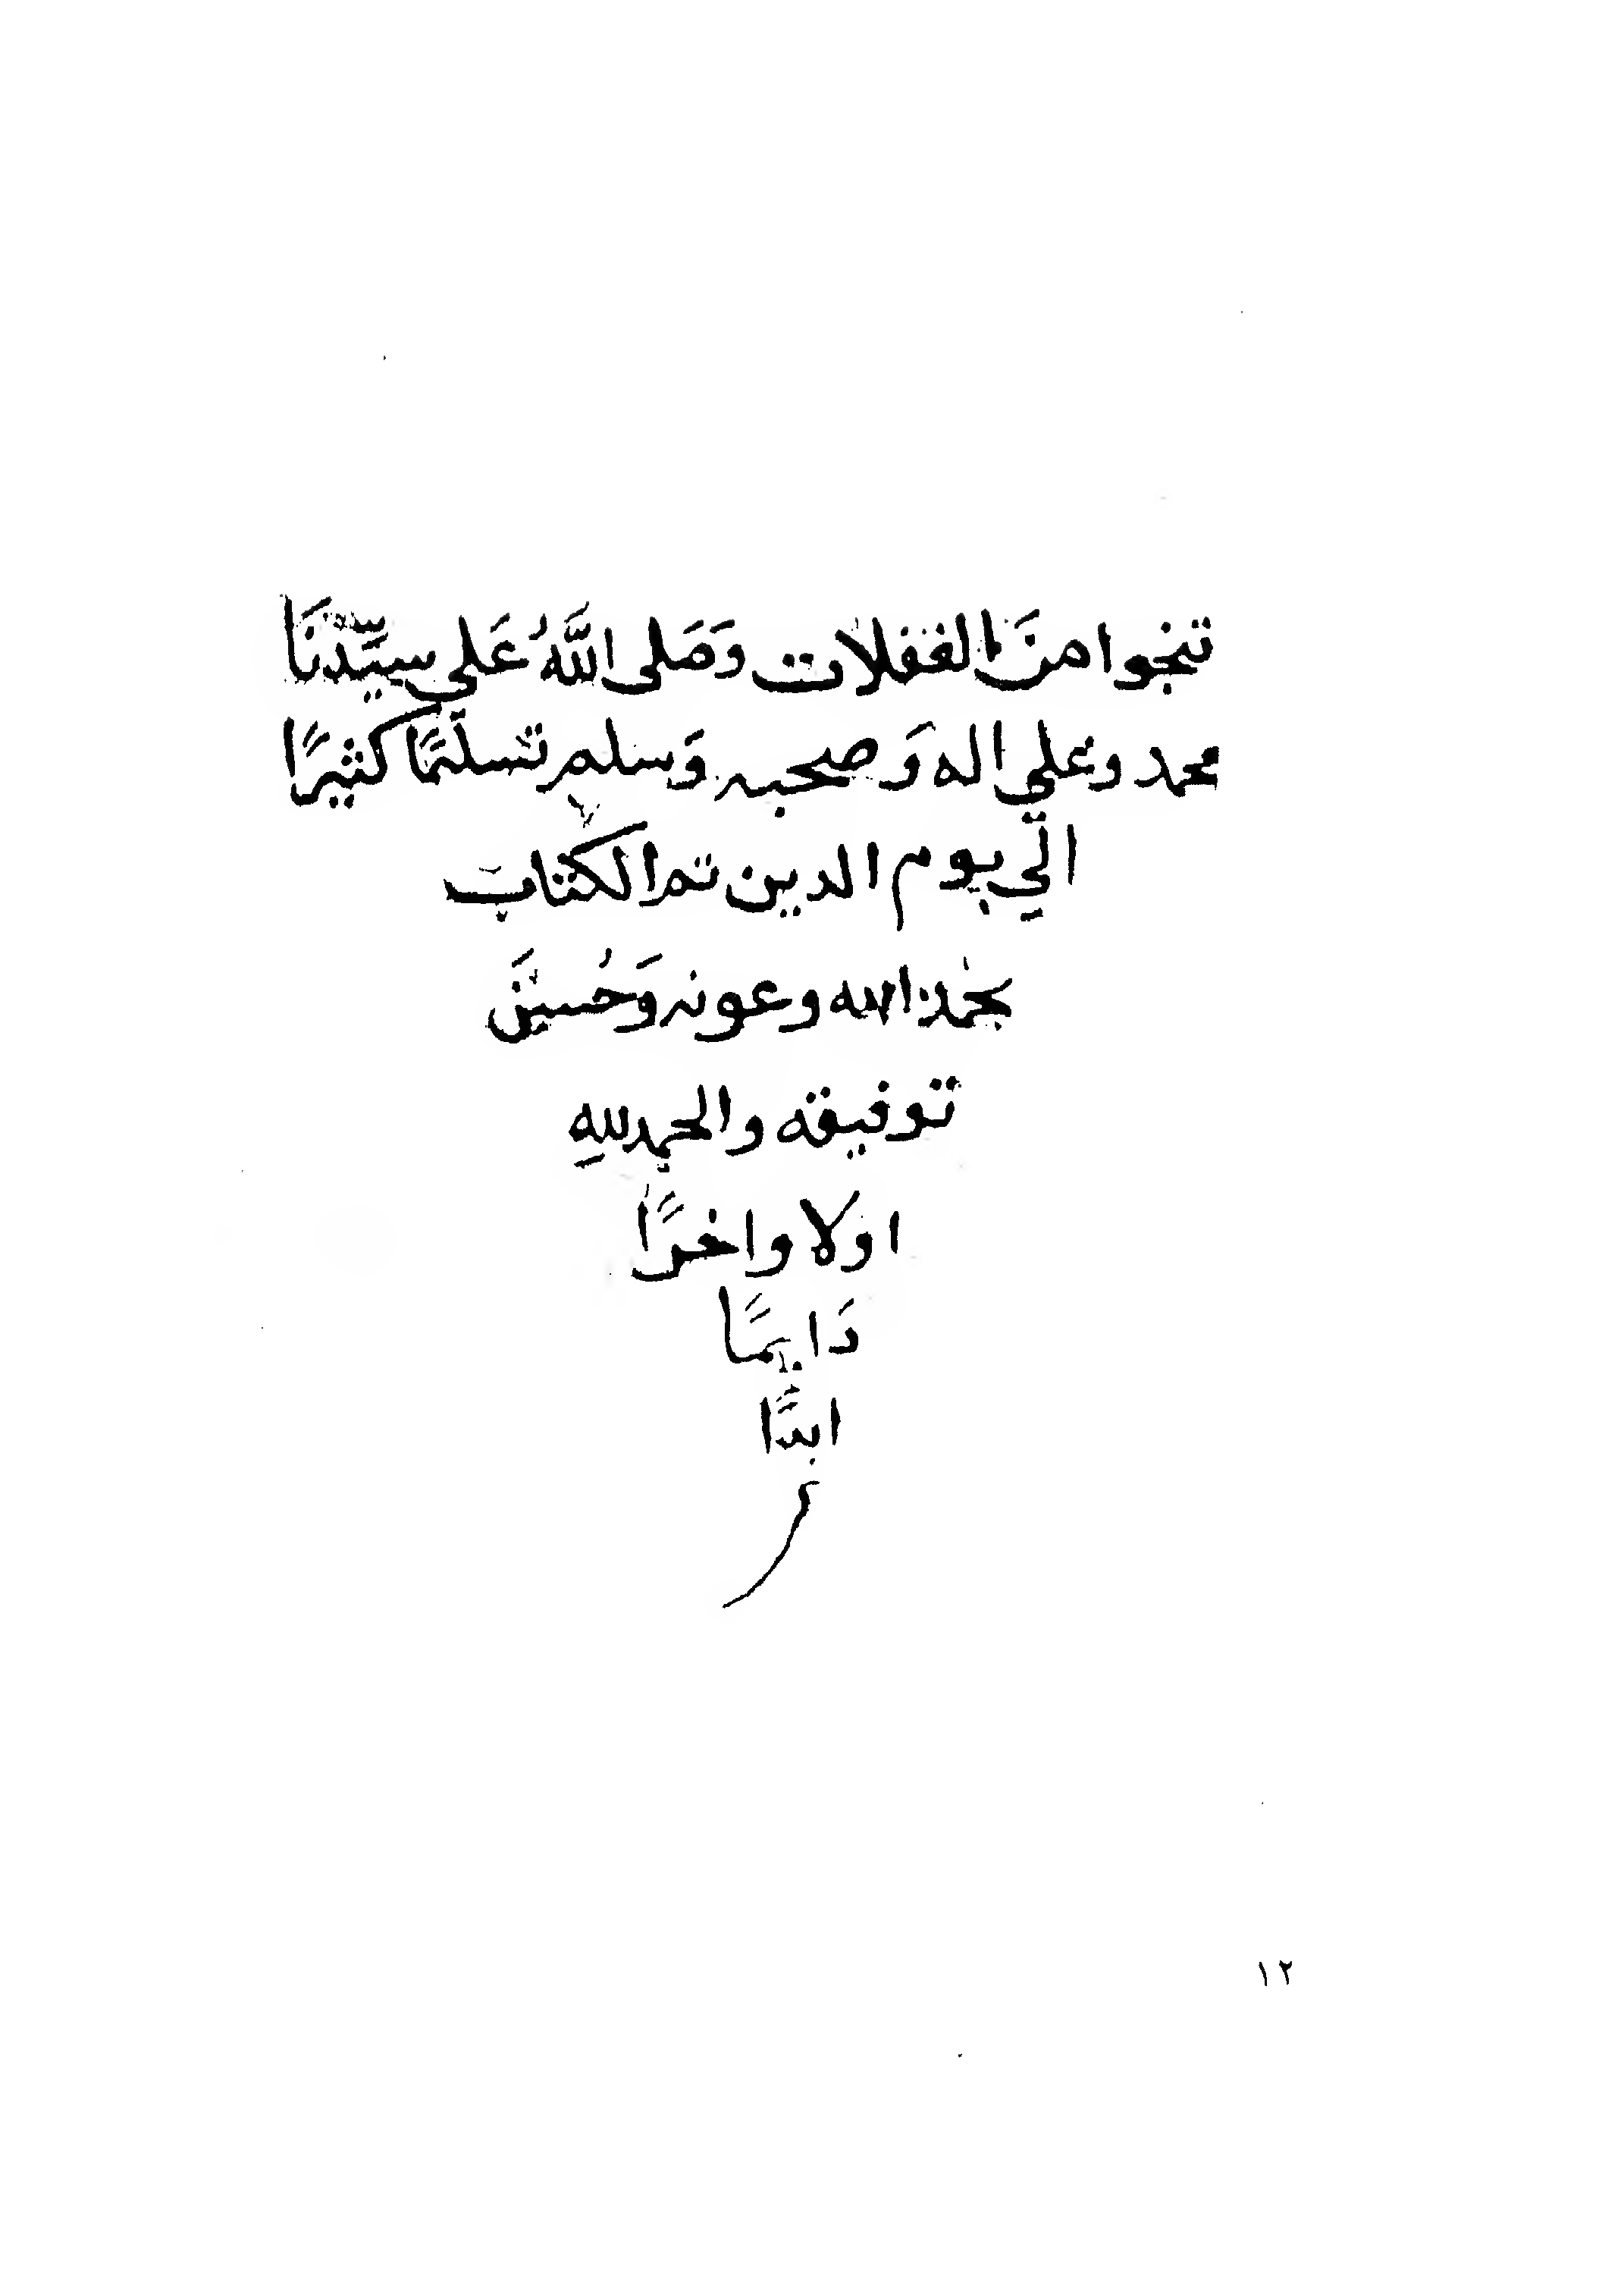 تنجوا منَ الغفلات وَصَلى اللَّهُ عَلي سيِّدنَا
محمد وعلي اله وَصحبه وَسلم تسليمًا كثيرًا
الي يوم الدين تم الكتاب
بحمد الله وعونه وَحُسنَ
توفيقه والحمد للهِ
اولا واخرًا
دَايمًا
ابدًا
١٢